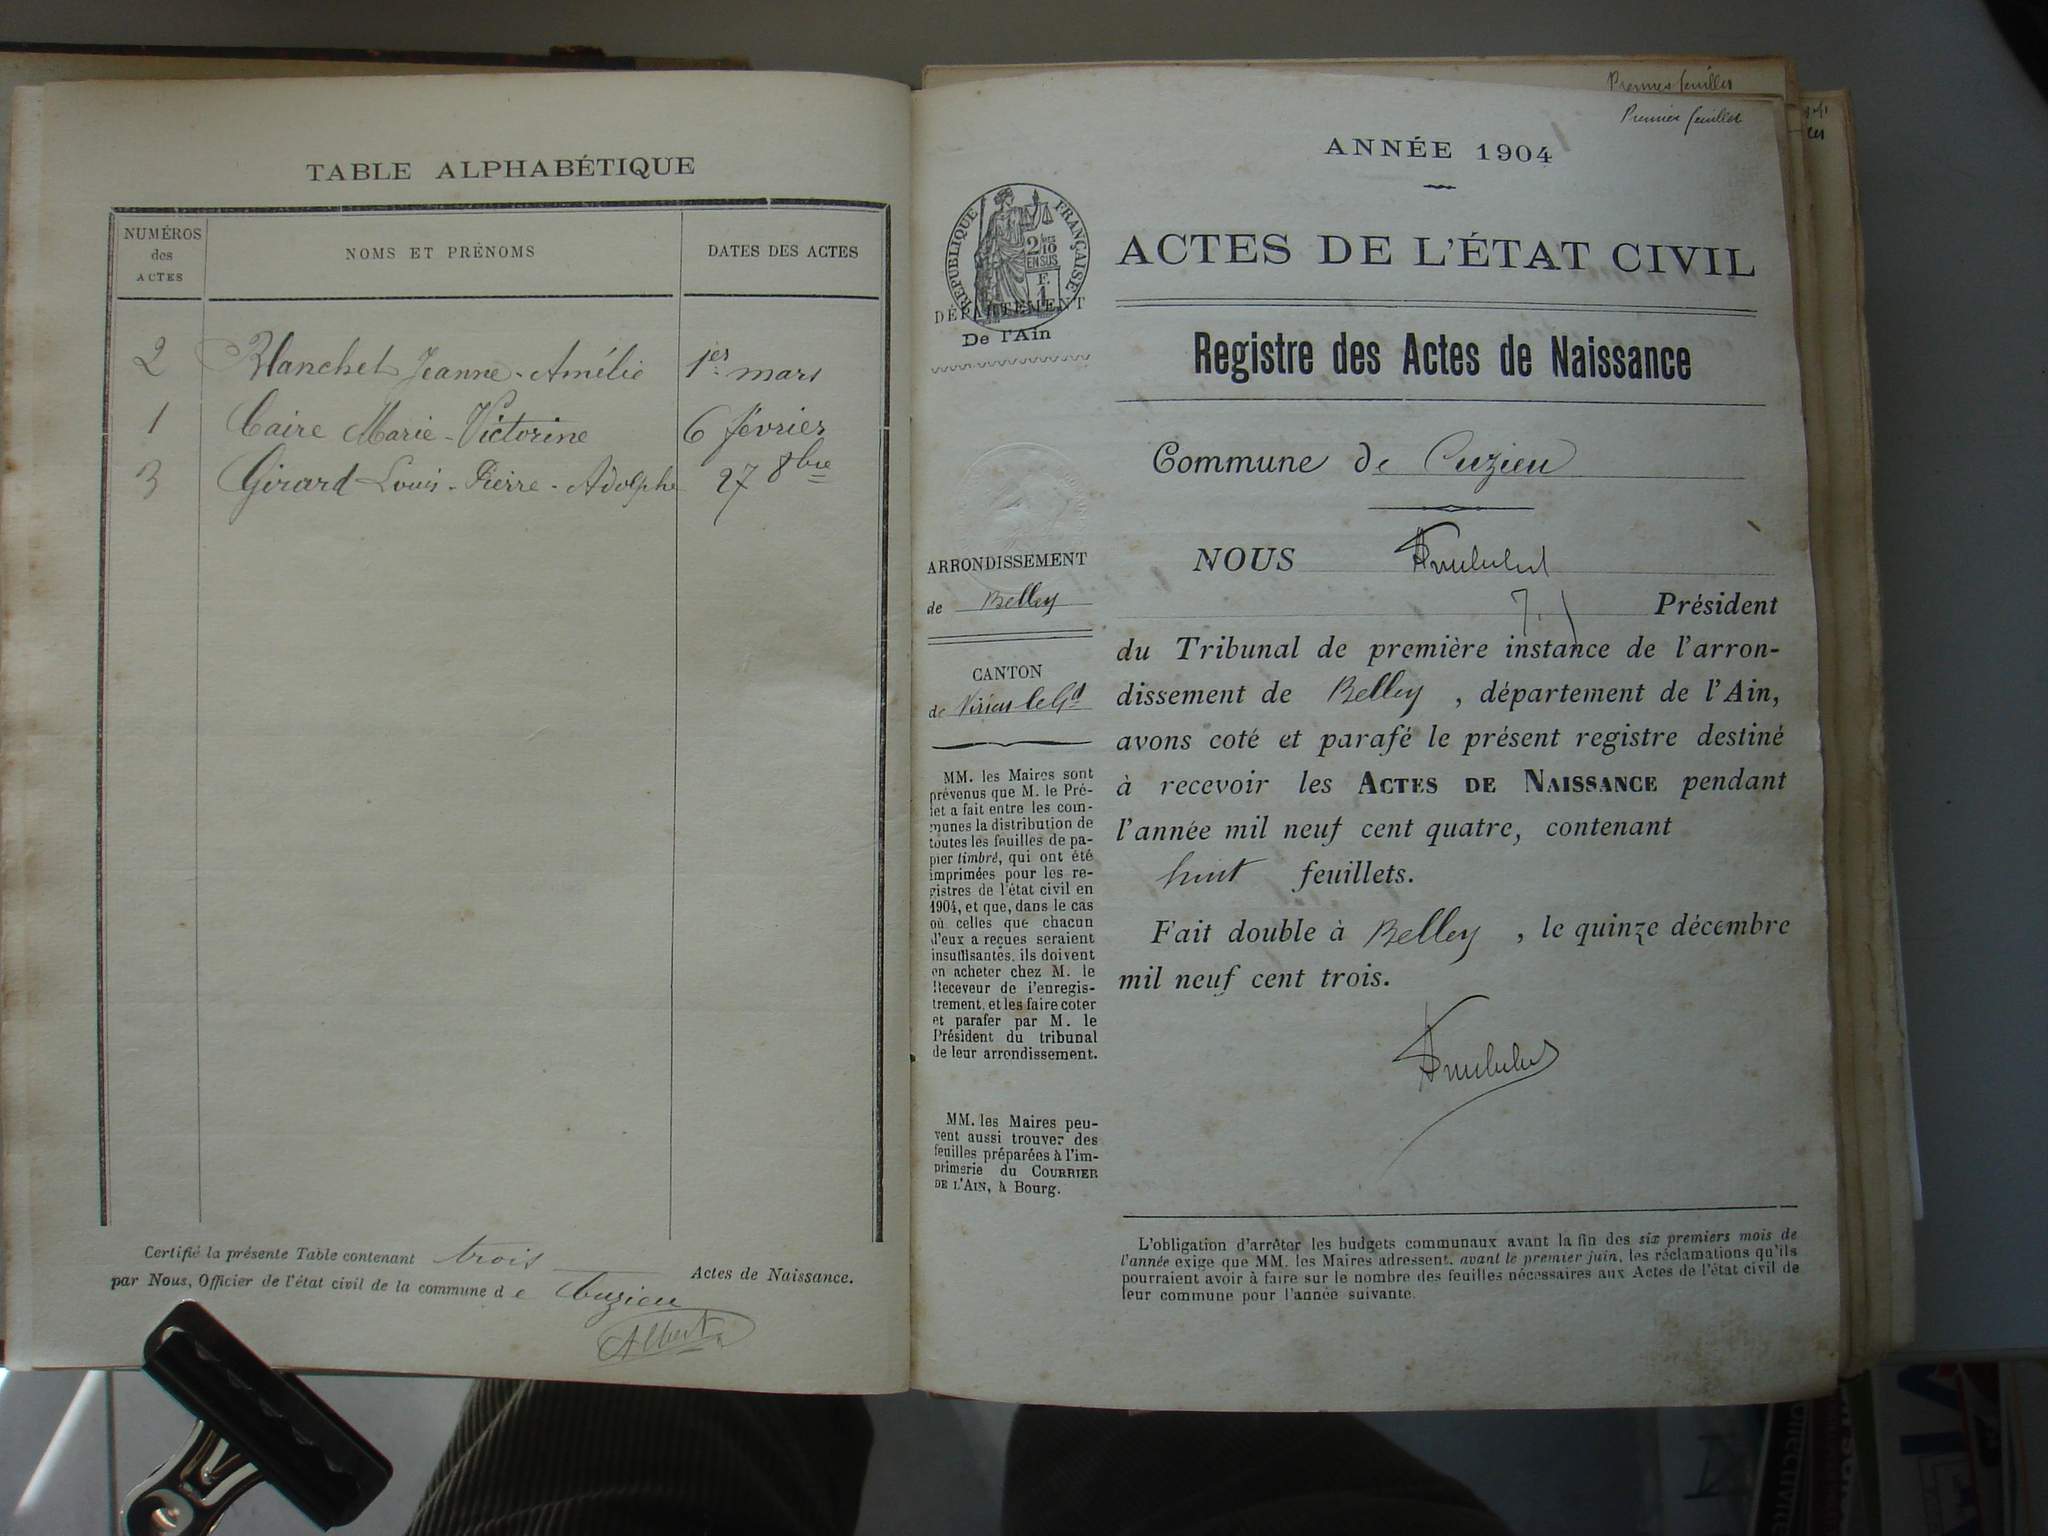 TABLE ALPHABÉTIQUE
NUMÉROS
des
ACTES
NOMS ET PRÉNOMS
DATES DES ACTES
2 Blanchet Jeanne-Amélie 1er mars
1 Caire Marie-Victorine 6 février
3 Girard Louis-Pierre-Adolphe 27 8bre
Certifié la présente Table contenant trois Actes de Naissance.
par Nous, Officier de l'état civil de la commune de Cuzieu
Albert
Premier feuillet
Premier feuillet
ANNÉE 1904
RÉPUBLIQUE FRANÇAISE
2/10
EN SUS
F.
1
DÉPARTEMENT
De l'Ain
ACTES DE L'ÉTAT CIVIL
Registre des Actes de Naissance
Commune de Cuzieu
ARRONDISSEMENT
de Belley
CANTON
de Virieu le Gd
MM. les Maires sont
prévenus que M. le Pré-
fet a fait entre les com-
munes la distribution de
toutes les feuilles de pa-
pier timbré, qui ont été
imprimées pour les re-
gistres de l'état civil en
1904, et que, dans le cas
où celles que chacun
d'eux a reçues seraient
insuffisantes, ils doivent
en acheter chez M. le
Receveur de l'enregis-
trement, et les faire coter
et parafer par M. le
Président du tribunal
de leur arrondissement.
MM. les Maires peu-
vent aussi trouver des
feuilles préparées à l'im-
primerie du COURRIER
DE L'AIN, à Bourg.
NOUS
Président
du Tribunal de première instance de l'arron-
dissement de Belley, département de l'Ain,
avons coté et parafé le présent registre destiné
à recevoir les ACTES DE NAISSANCE pendant
l'année mil neuf cent quatre, contenant
huit feuillets.
Fait double à Belley, le quinze décembre
mil neuf cent trois.
L'obligation d'arrêter les budgets communaux avant la fin des six premiers mois de
l'année exige que MM. les Maires adressent, avant le premier juin, les réclamations qu'ils
pourraient avoir à faire sur le nombre des feuilles nécessaires aux Actes de l'état civil de
leur commune pour l'année suivante.